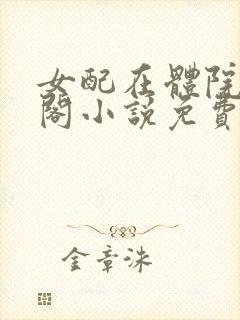 女配在體院
閣小説免費
金章洙